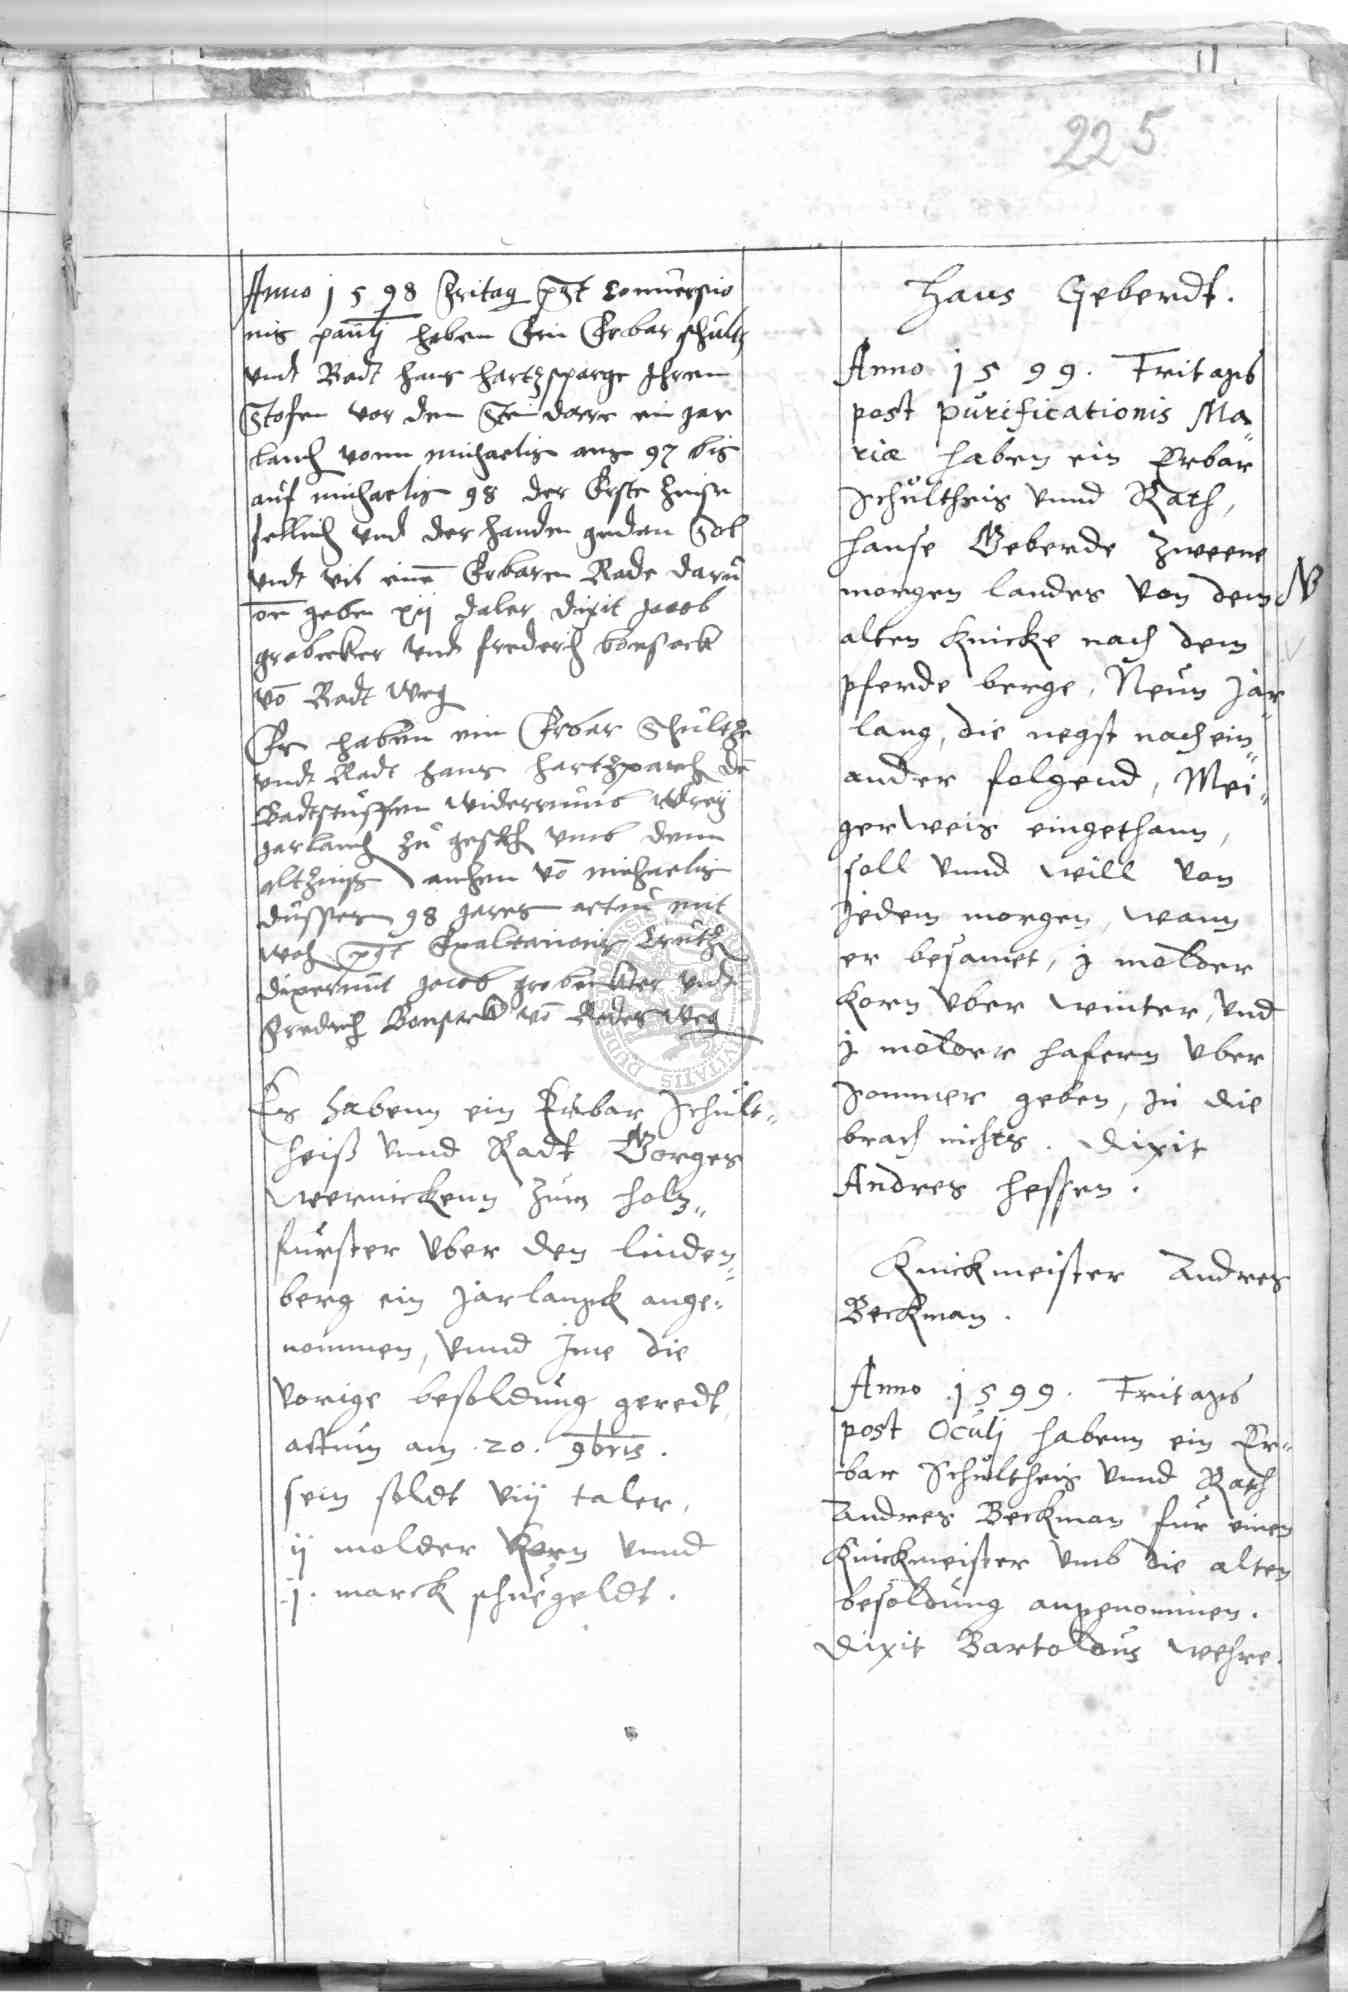 225
Anno 1598 Fritag post Conuersio
nis paulj haben Ein Erbar schultz
vndt Radt hans hartzsparge Ihren
Stofen vor dem Stein dore ein jar
lanch vonn michaelis ano 97 bis
auf michaelis 98 der Erste
vnd der handen gedan Sol
vndt wil einē Erbaren Rade darū
geben xij daler dixit jacob
grobecker vnd frederich bonsack
vō Radt weg
Er haben ein Erbar Schultze
vndt Radt hans hartzsparch de
Badtstuffen widerrumb
jarlanch zu gesetzt vmb denn
altzins anhen vō michaelis
dusses 98 jares actū mit
woch post Exaltationis Crutz
dixerunt jacob grobecker vnd
Fredrich Bonsack vō Rades weg
Es habenn ein Erbar Schult„
heiß vnnd Radt Gorges
Wernickenn zum holtz„
furster vber den linden„
berg ein jarlangk ange„
nommen, vnnd Ime die
vorige besoldung geredt,
actum am .20. 9bris.
sein soldt viij taler,
ij molder korn vnnd
.j. marck schuegeldt.
Hans Geberdt.
Anno 1599. Fritags
post purificationis Ma„
riæ haben ein Erbar
Schultheis vnnd Rath,
hanse Geberde zweene
morgen landes von dem NB
alten knicke nach dem
pferde berge, Neun jar„
lang, die negst nach ein„
ander folgend, Mei„
gerweis eingethann,
soll vnnd will von
jedem morgen, wann
er besamet, j molder
korn vber winter, vnd
j molder hafern vber
Sommer geben, in die
brach nichts. dixit
Andres hessen.
Knickmeister Andres
Beckman.
Anno .1599. Fritags
post Oculj habenn ein Er„
bar Schultheis vnnd Rath
Andres Beckman fur einen
Knickmeister vmb die alten
besoldung angenommen.
dixit Bartolous Wehre.